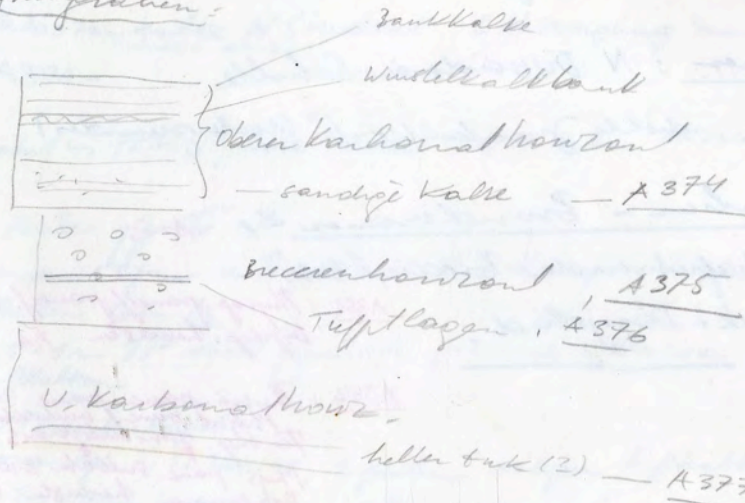 Bankkalke
Wühlkalkbank
Oberer Karbonathorizont
— sandige Kalke — A 374
Breccienhorizont, A 375
Tufflagen, A 376
U. Karbonathoriz.
heller (2) — A 377